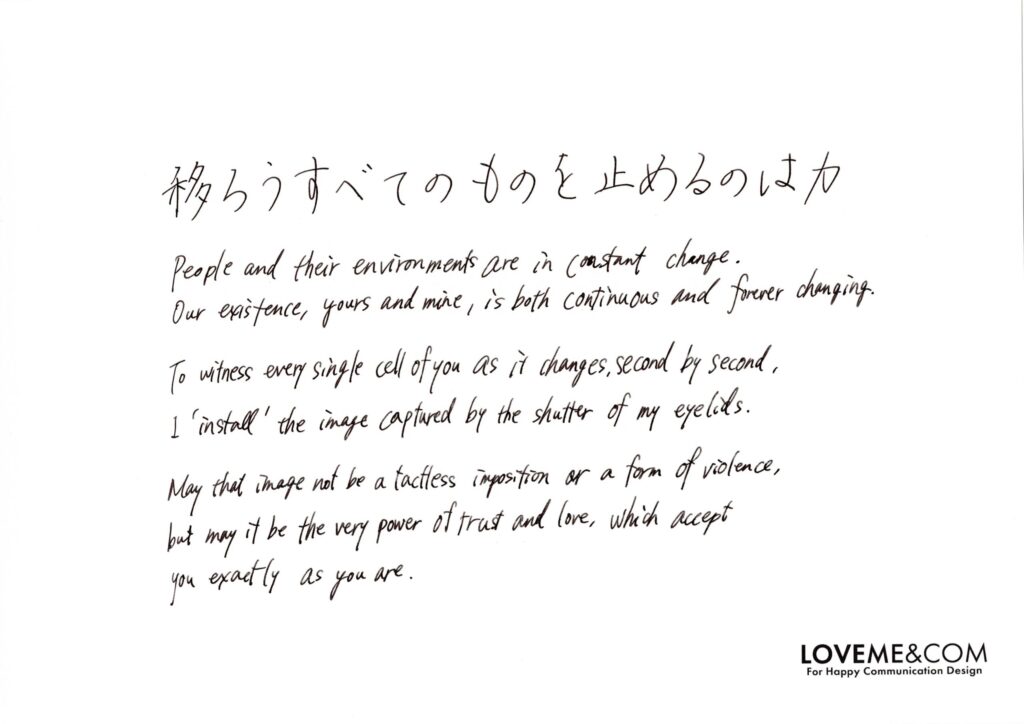 移ろうすべてのものを止めるのは力
People and their environments are in constant change.
Our existence, yours and mine, is both continuous and forever changing.
To witness every single cell of you as it changes, second by second,
I 'install' the image captured by the shutter of my eyelids.
May that image not be a tactless imposition or a form of violence,
but may it be the very power of trust and love, which accept
you exactly as you are.
LOVEME&COM
For Happy Communication Design